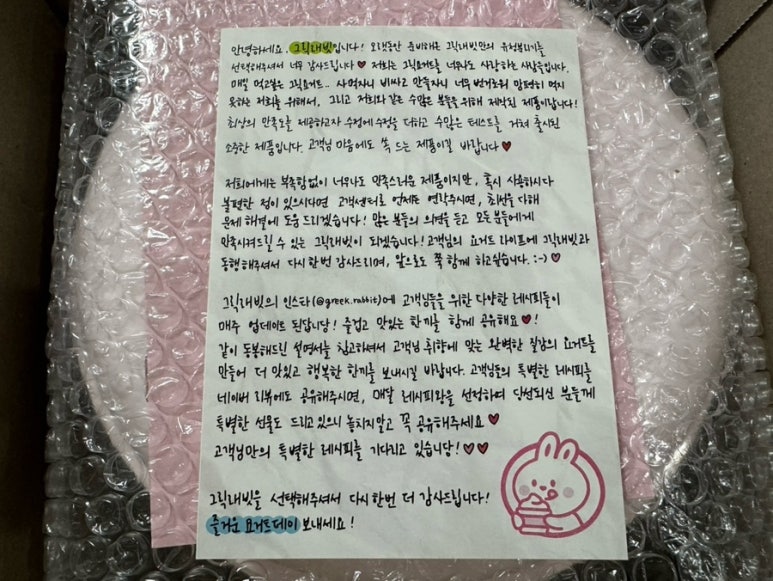 안녕하세요. 그릭래빗입니다! 오랫동안 준비해온 그릭래빗만의 유청분리기를
선택해주셔서 너무 감사드립니다♥ 저희는 그릭요거트를 너무나도 사랑하는 사람들입니다.
매일 먹고싶은 그릭요거트.. 사먹자니 비싸고 만들자니 너무 번거로워 맘편히 먹지
못하는 저희를 위해서, 그리고 저희와 같은 수많은 분들을 위해 제작된 제품이랍니다!
최상의 만족도를 제공하고자 수정에 수정을 더하고 수많은 테스트를 거쳐 출시된
소중한 제품입니다. 고객님 마음에도 쏙 드는 제품이길 바랍니다♥
저희에게는 부족함없이 너무나도 만족스러운 제품이지만, 혹시 사용하시다
불편한 점이 있으시다면 고객센터로 언제든 연락주시면, 최선을 다해
문제 해결에 도움 드리겠습니다! 많은 분들의 의견을 듣고 모든분들에게
만족시켜드릴 수 있는 그릭래빗이 되겠습니다! 고객님의 요거트 라이프에 그릭래빗과
동행해주셔서 다시한번 감사드리며, 앞으로도 쭉 함께 하고싶습니다. :-) ♥
그릭래빗의 인스타(@greek.rabbit)에 고객님들을 위한 다양한 레시피들이
매주 업데이트 된답니당! 즐겁고 맛있는 한끼를 함께 공유해요♥!
같이 동봉해드린 설명서를 참고하셔서 고객님 취향에 맞는 완벽한 질감의 요거트를
만들어 더 맛있고 행복한 한끼를 보내시길 바랍니다. 고객님들의 특별한 레시피를
네이버 리뷰에도 공유해주시면, 매달 레시피왕을 선정하여 당선되신 분들께
특별한 선물도 드리고있으니 놓치지말고 꼭 공유해주세요♥
고객님만의 특별한 레시피를 기다리고 있습니당!♥♥
그릭래빗을 선택해주셔서 다시한번 더 감사드립니다!
즐거운 요거트데이 보내세요!